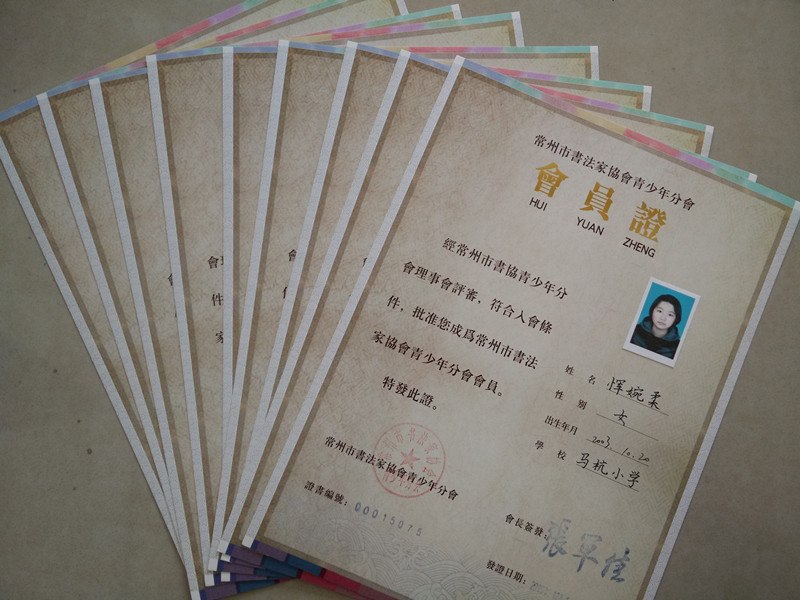 常州市書法家協會青少年分會
會員證
HUI YUAN ZHENG
經常州市書協青少年分
會理事會評審，符合入會條
件，批准您成爲常州市書法
家協會青少年分會會員。
特發此證。
姓 名 恽婉柔
性 别 女
出生年月 2003.10.20
學 校 马杭小学
常州市書法家協會青少年分會
證書編號：00015075
會長簽發：
發證日期：
會理
件
家
會
會
會